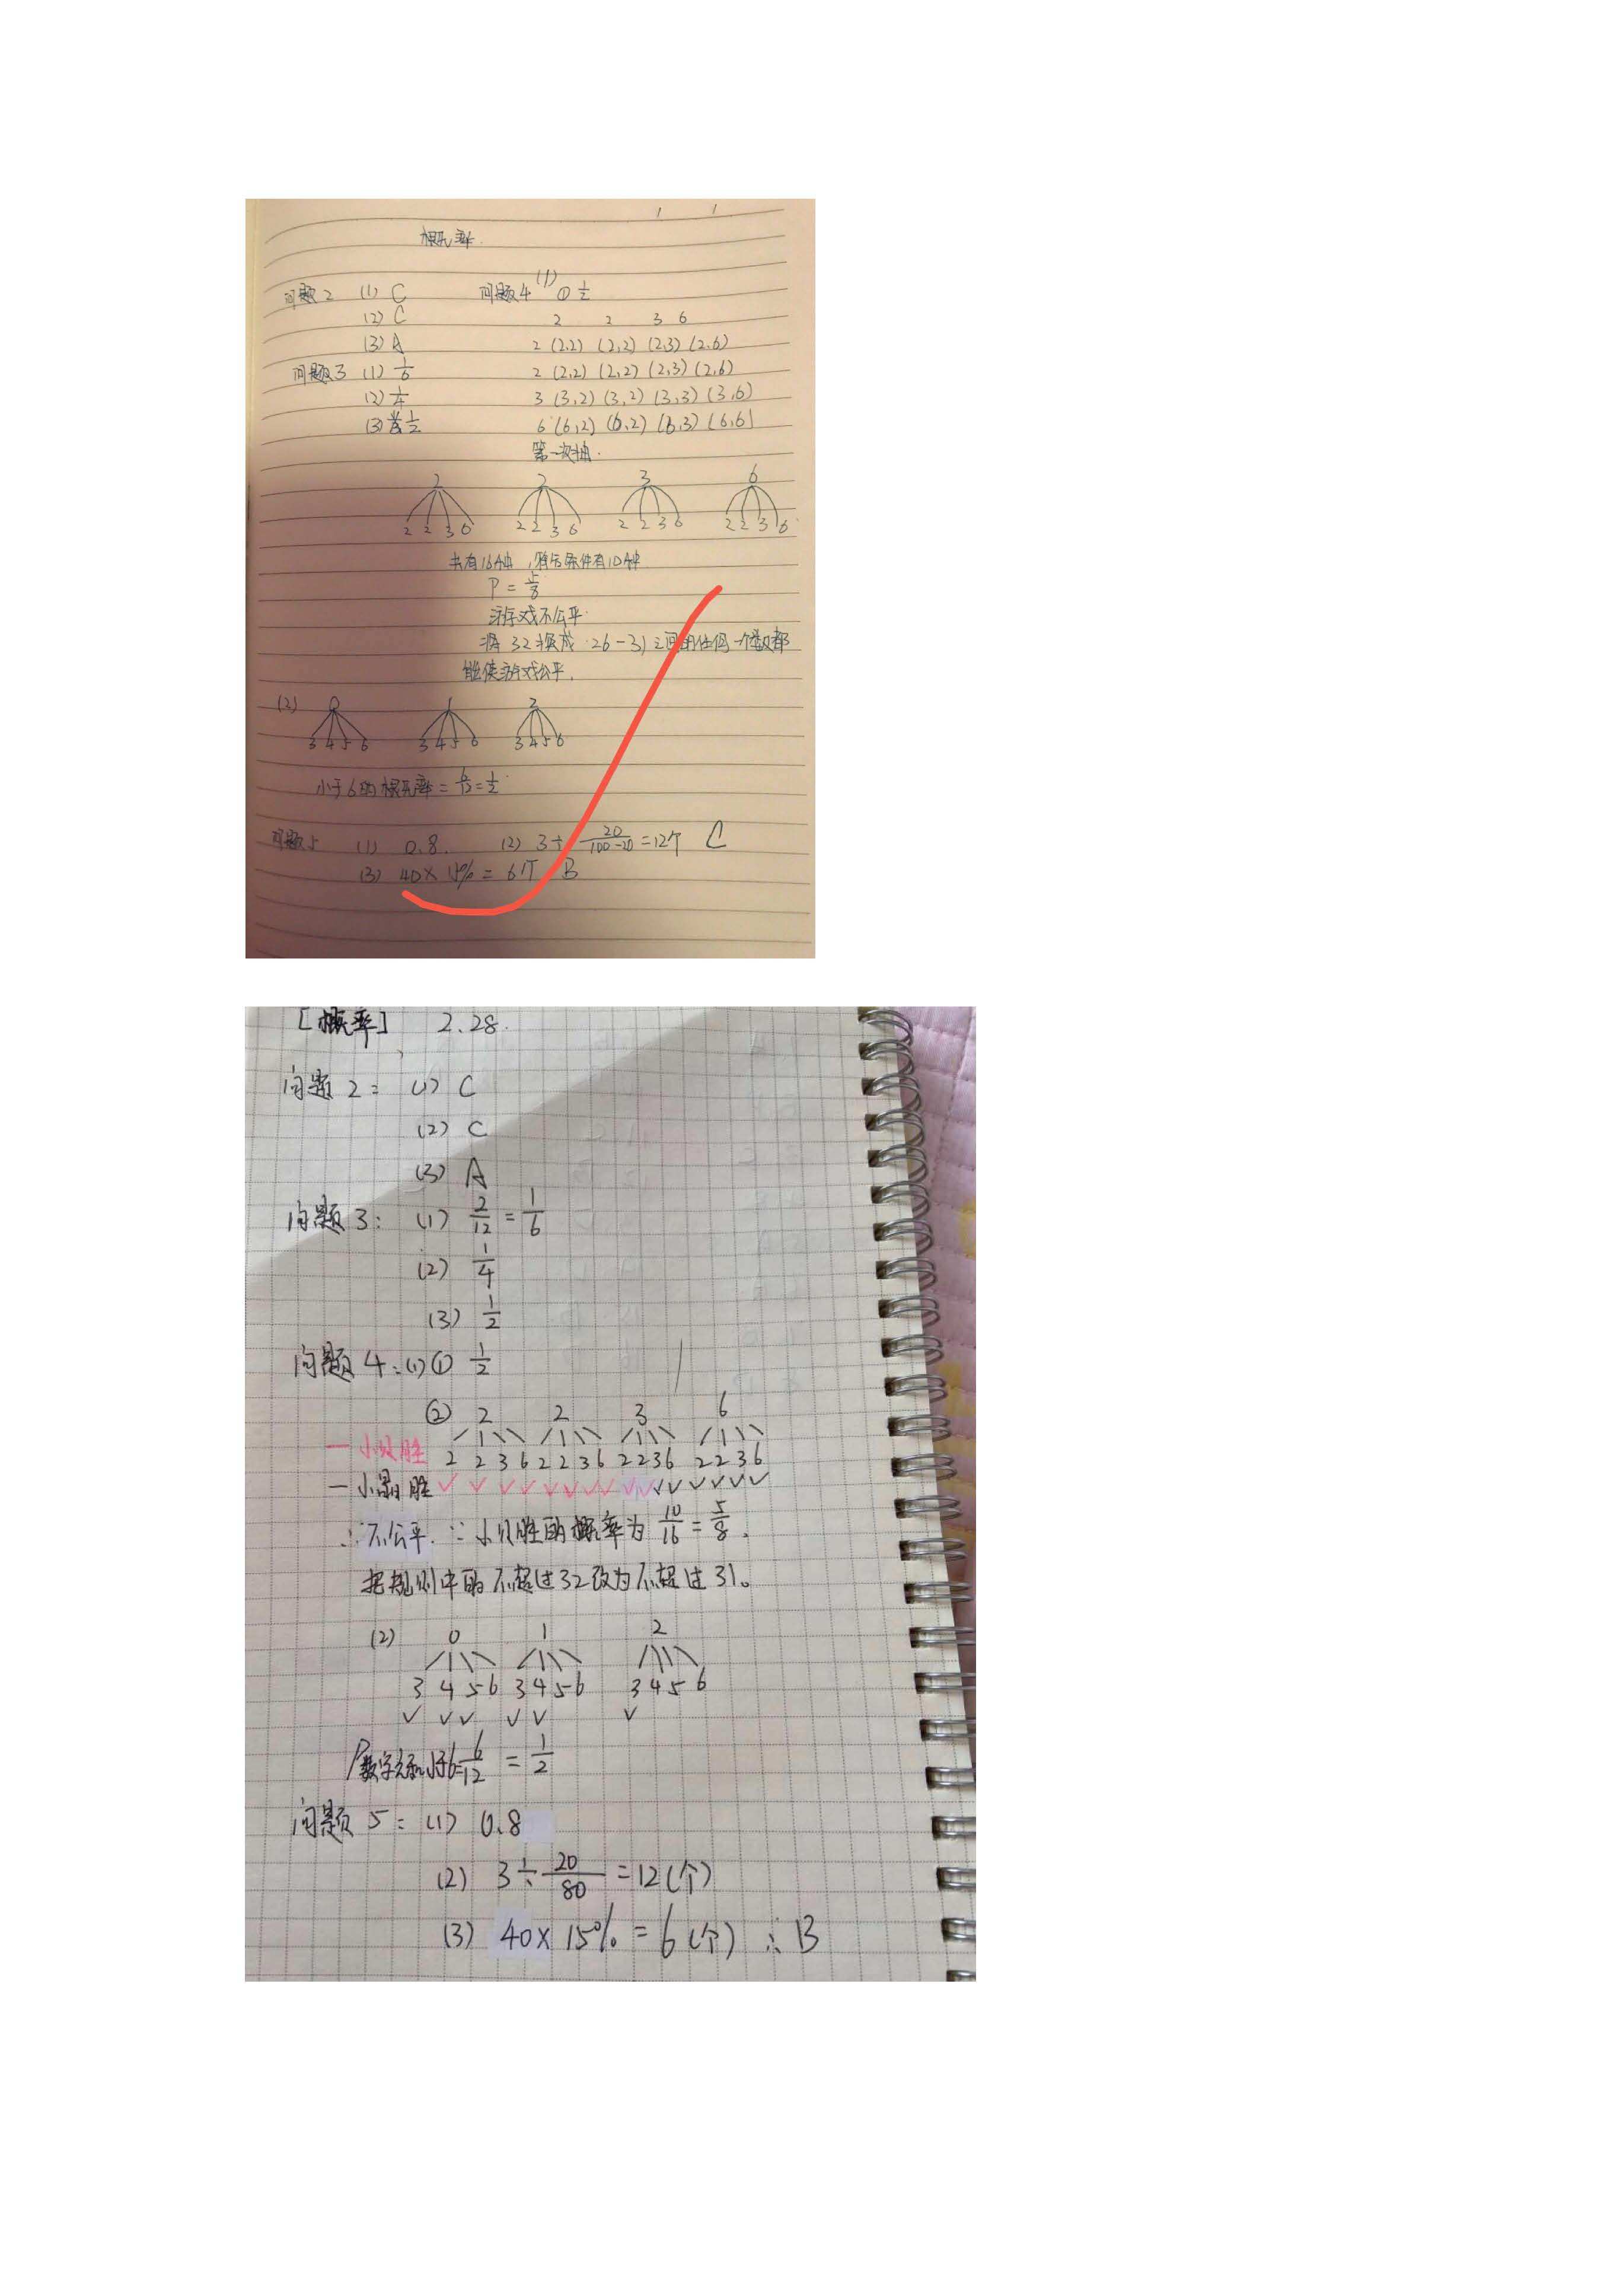 概率.
问题2 (1) C
(2) C
(3) A
问题3 (1) 1/6
(2) 1/4
(3) 1/2
问题4 (1) ① 1/2
2 2 3 6
2 (2,2) (2,2) (2,3) (2,6)
2 (2,2) (2,2) (2,3) (2,6)
3 (3,2) (3,2) (3,3) (3,6)
6 (6,2) (6,2) (6,3) (6,6)
第一次抽.
2 2 3 6
2 2 3 6 2 2 3 6 2 2 3 6 2 2 3 6
共有16种,符合条件有10种
P = 5/8
游戏不公平.
将32换成26-31之间的任何一个数都
能使游戏公平.
(2) 0 1 2
3 4 5 6 3 4 5 6 3 4 5 6
小于6的概率=6/12=1/2.
问题5 (1) 0.8. (2) 3÷20/(100-20)=12个 C
(3) 40×15%=6个 B
[概率] 2.28.
问题2: (1) C
(2) C
(3) A
问题3: (1) 2/12=1/6
(2) 1/4
(3) 1/2
问题4:(1)① 1/2
② 2 2 3 6
一小贝胜 2 2 3 6 2 2 3 6 2 2 3 6 2 2 3 6
一小晶胜 ✓ ✓ ✓ ✓ ✓ ✓ ✓ ✓ ✓ ✓ ✓ ✓ ✓ ✓ ✓ ✓
∴不公平.∵小贝胜的概率为10/16=5/8.
把规则中的不超过32改为不超过31。
(2) 0 1 2
3 4 5 6 3 4 5 6 3 4 5 6
✓ ✓ ✓ ✓ ✓ ✓
P数字之和小于6=6/12=1/2
问题5: (1) 0.8
(2) 3÷20/80=12(个)
(3) 40×15%=6(个) ∴B